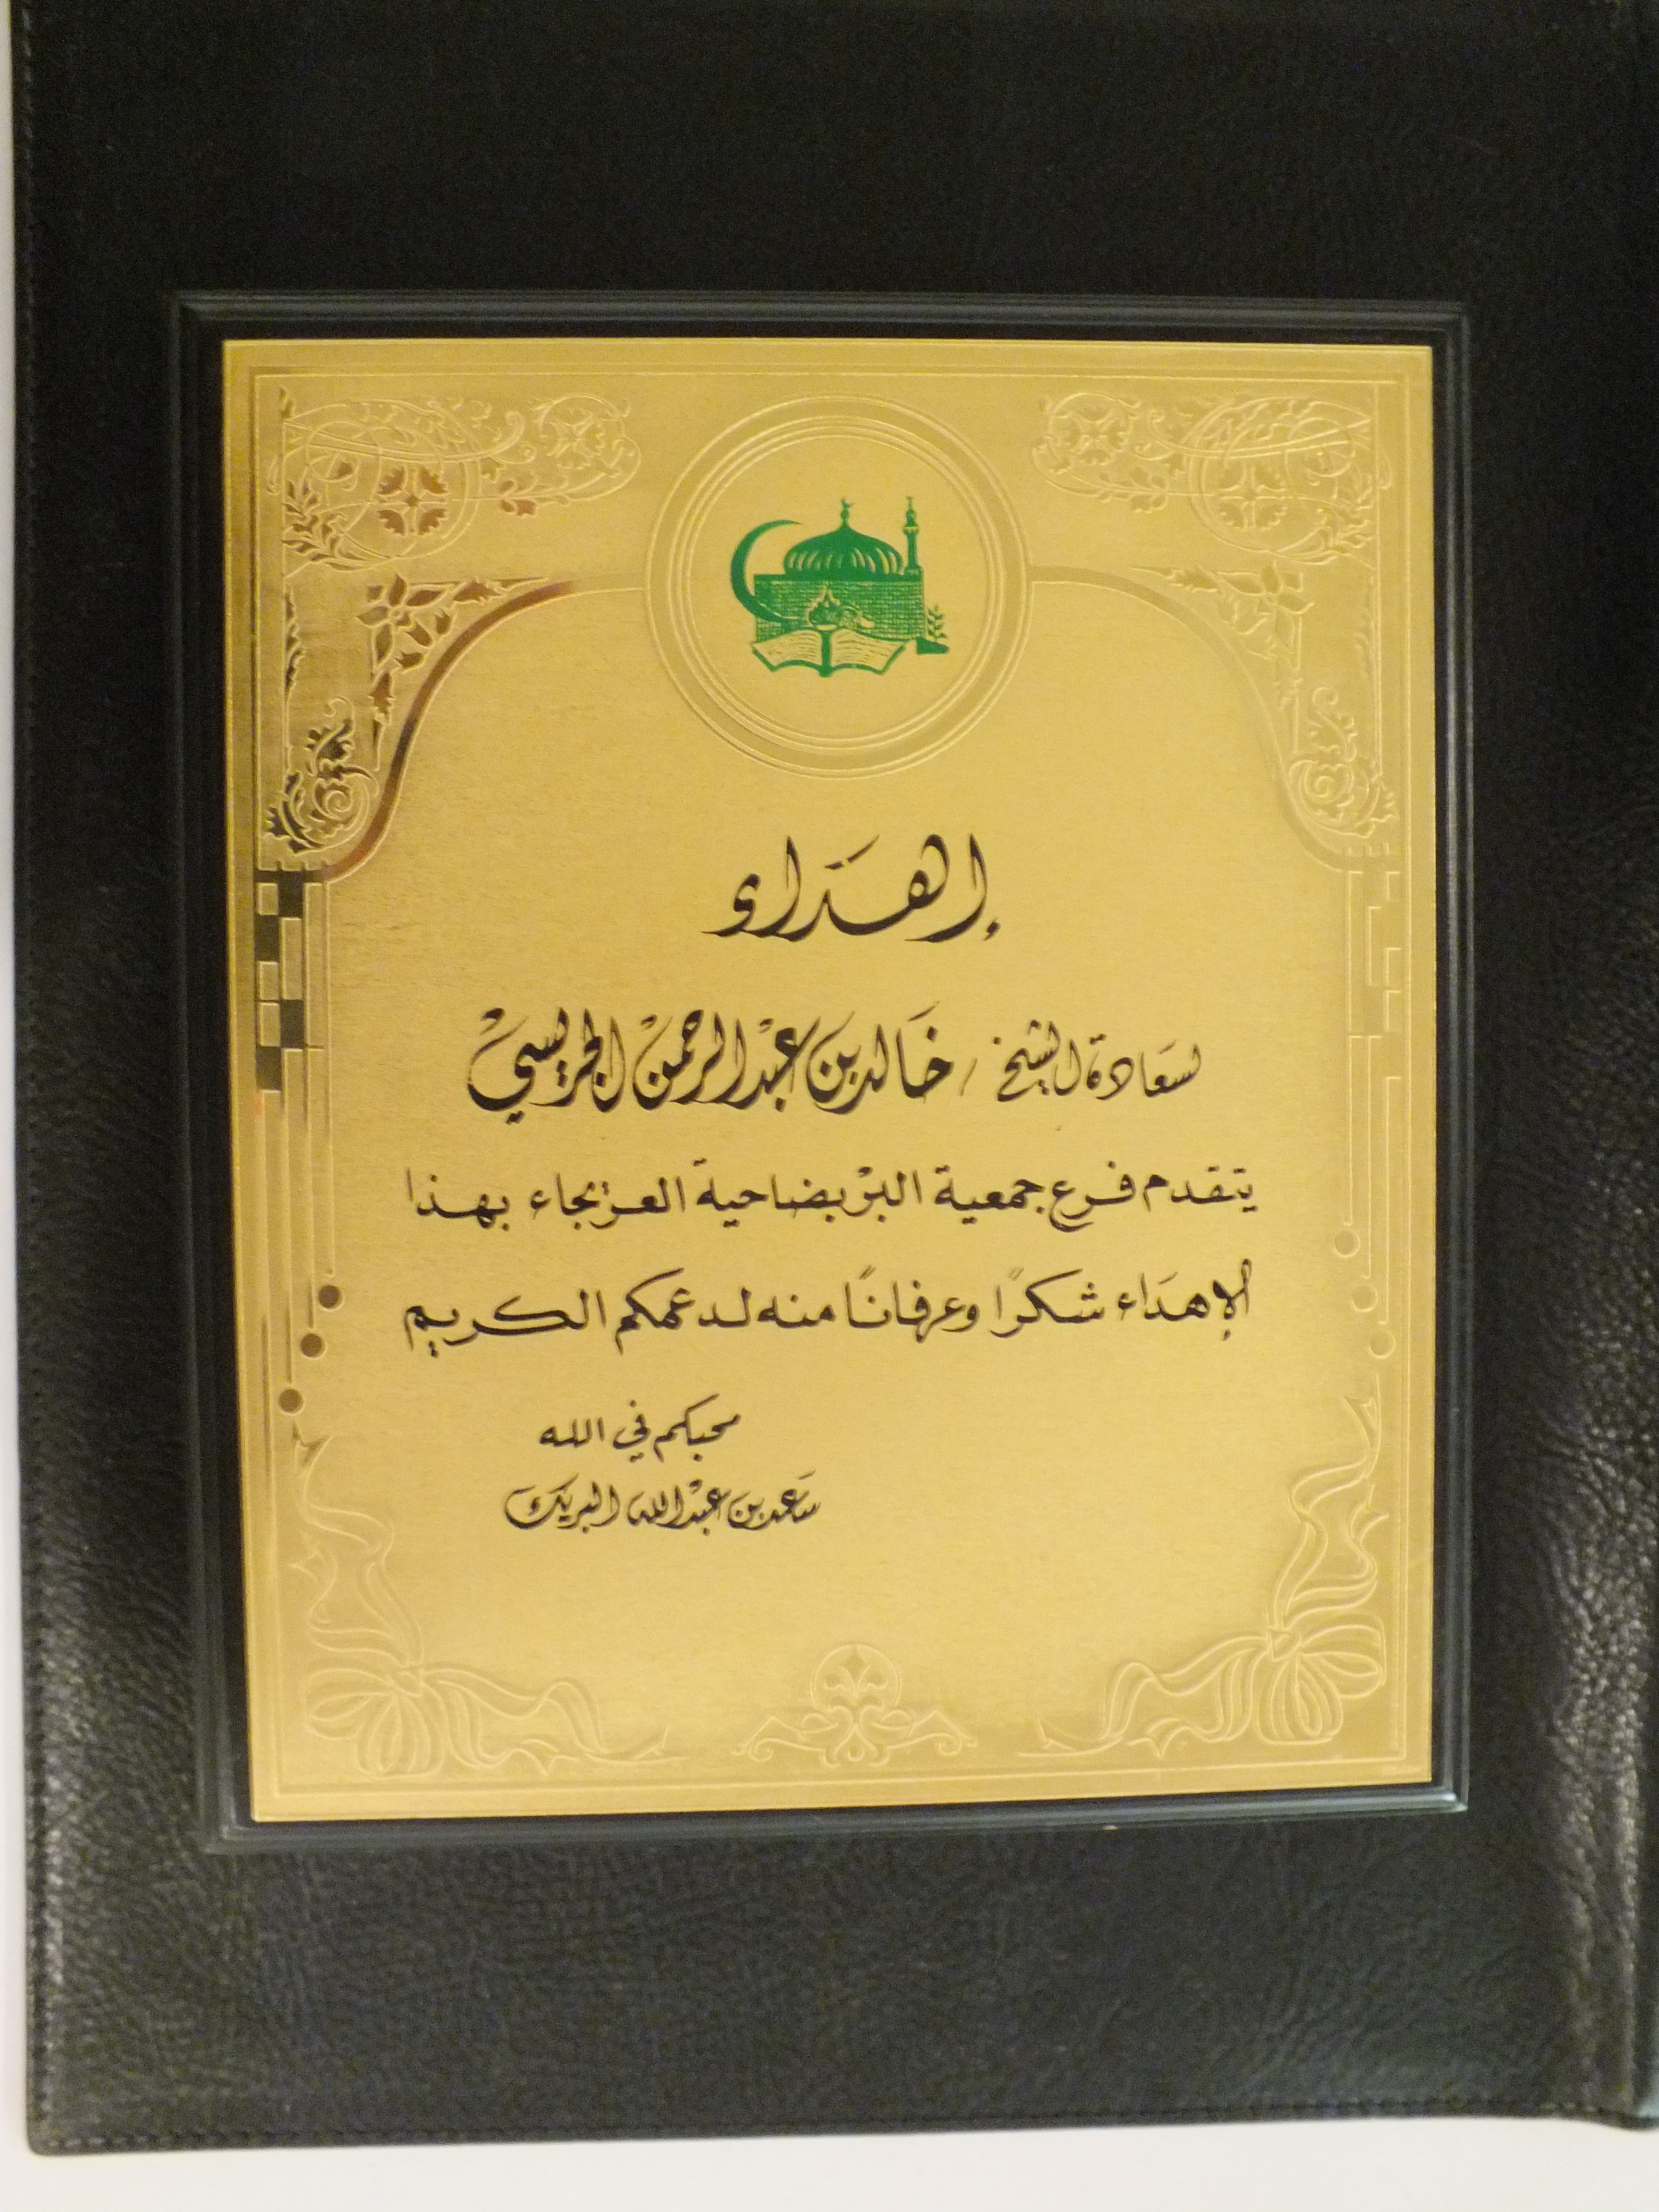 إهداء
لسعادة الشيخ / خالد بن عبدالرحمن الجريسي
يتقدم فرع جمعية البر بضاحية العريجاء بهذا
الإهداء شكرًا وعرفانًا منه لدعمكم الكريم
محبكم في الله
سعد بن عبدالله البريك